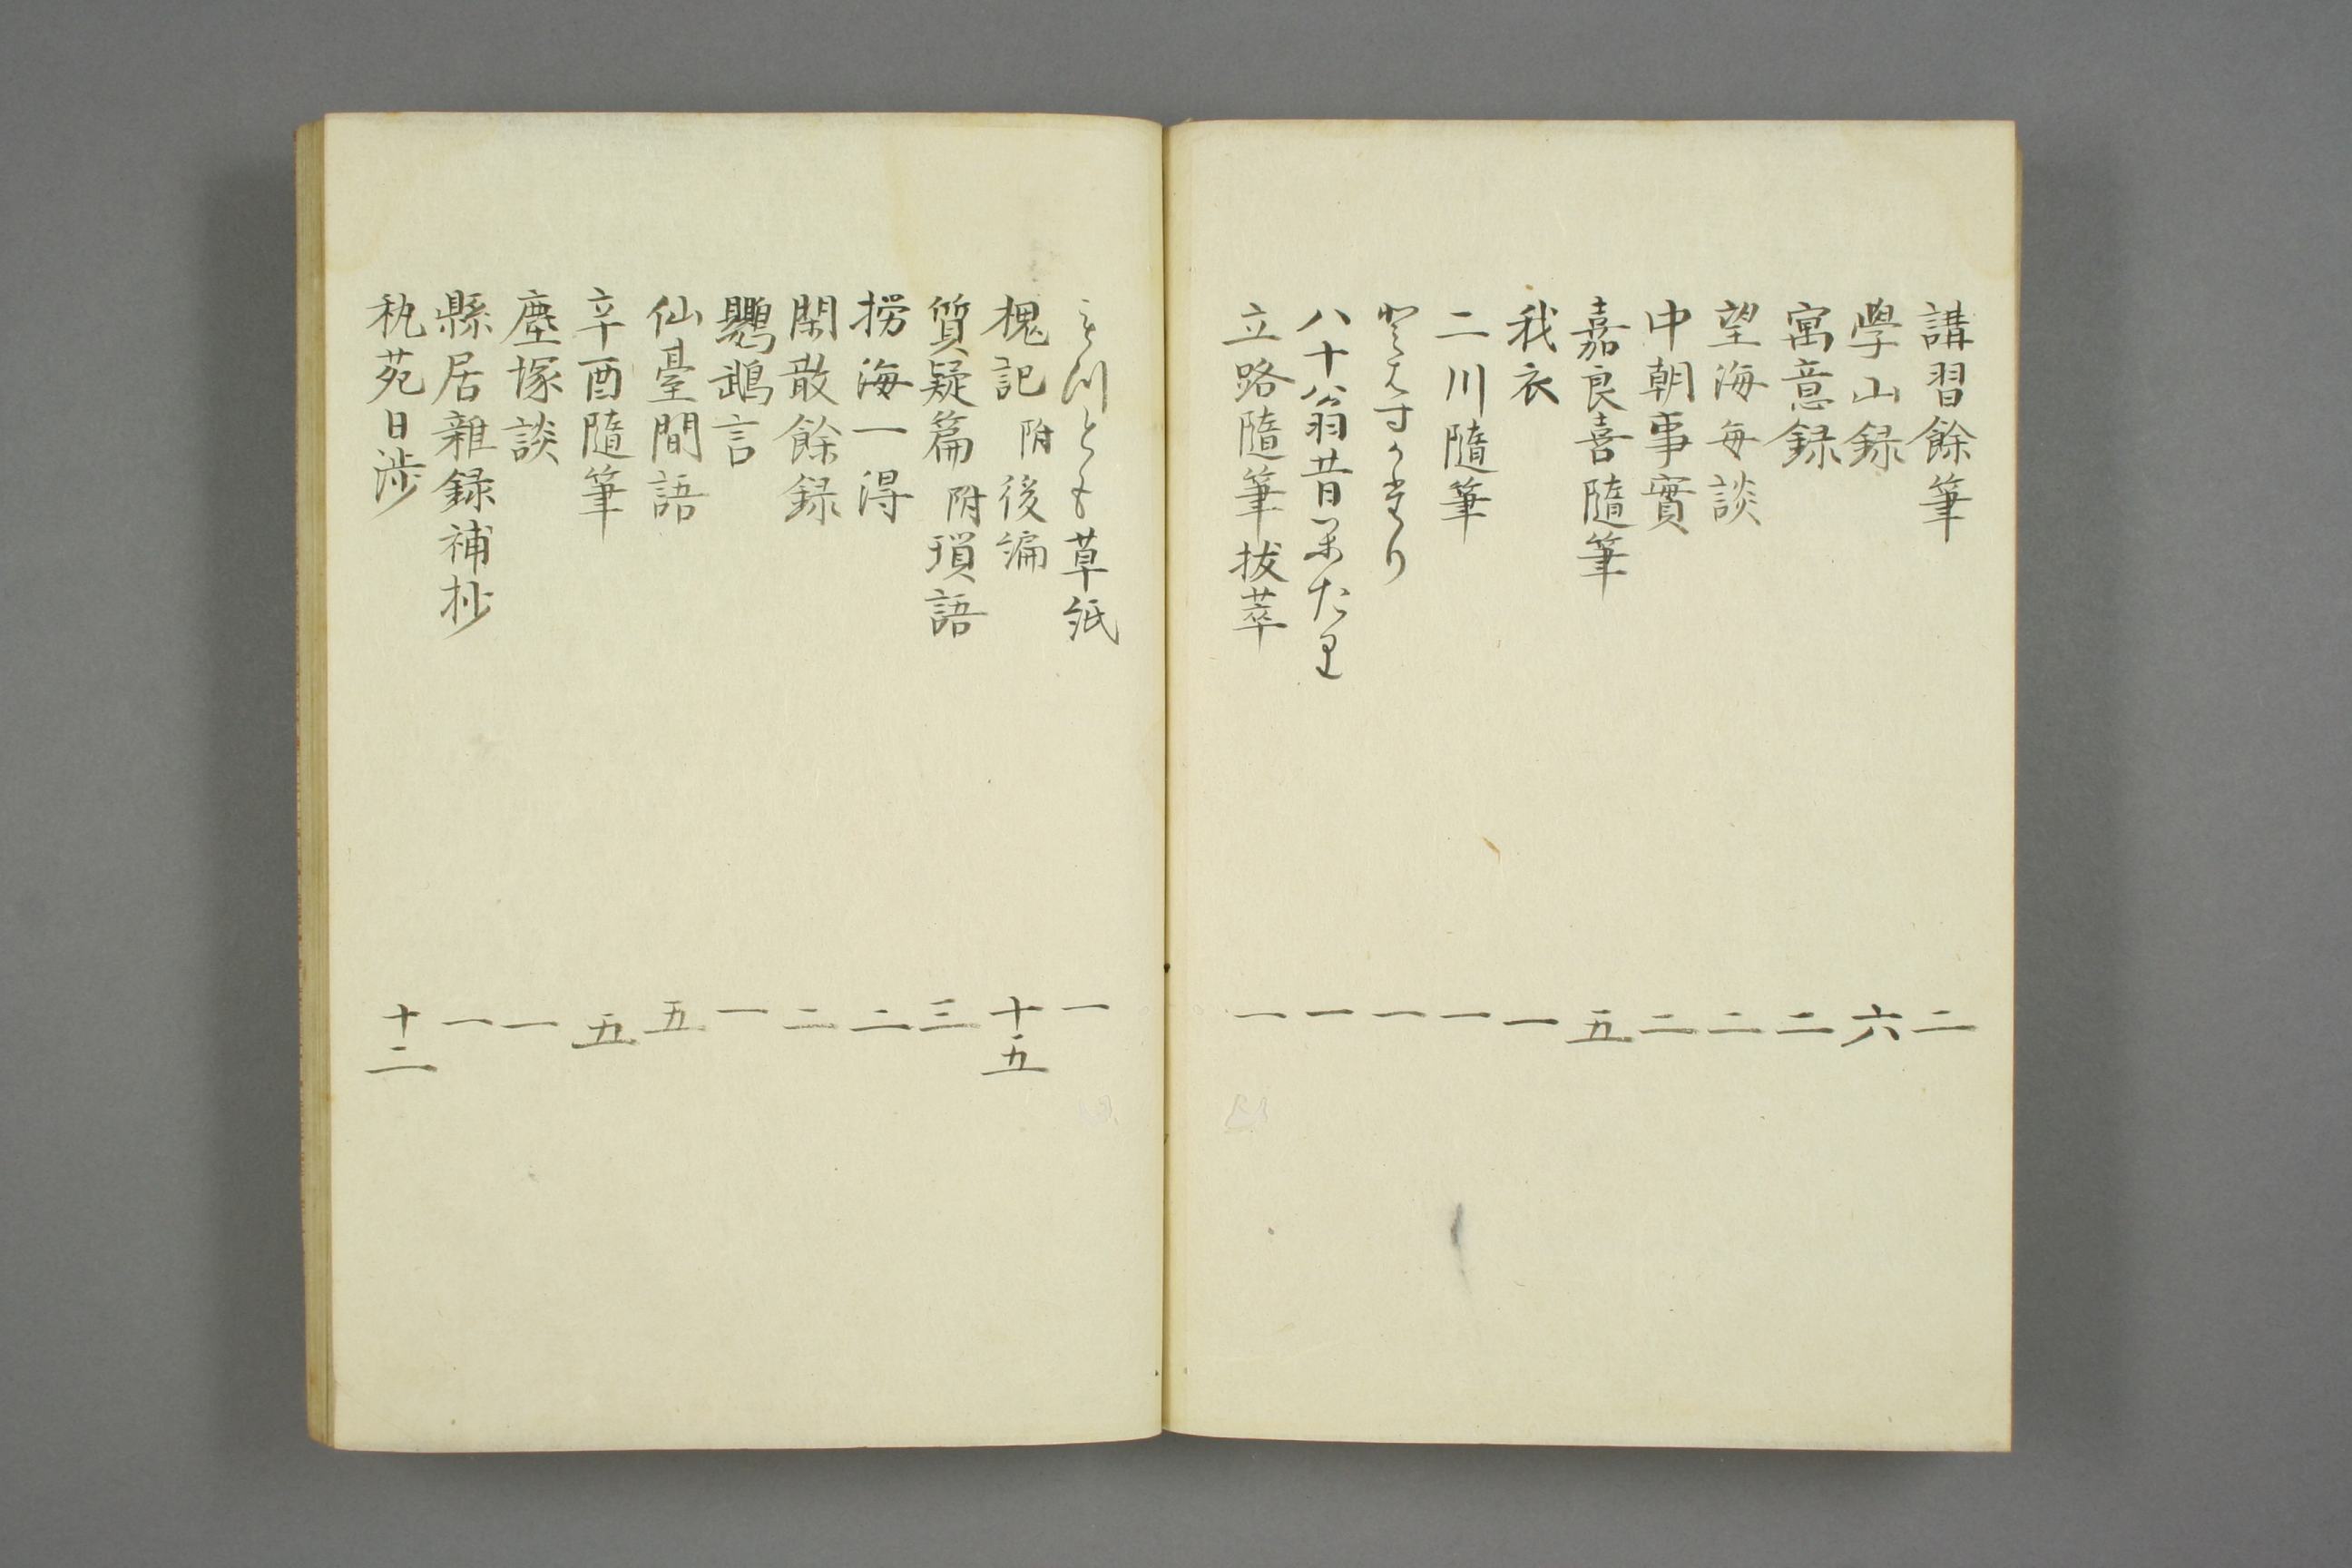 講習餘筆 二
學山録 六
寓意録 二
望海毎談 二
中朝事實 二
嘉良喜隨筆 五
我衣 一
二川隨筆 一
とはすかたり 一
八十翁昔かたり 一
立路隨筆拔萃 一
みつとも草紙 一
槐記 附後編 十五
質疑篇 附瑣語 三
撈海一得 二
閑散餘録 二
鸚鵡言 一
仙臺間語 五
辛酉隨筆 五
塵塚談 一
縣居雜録補抄 一
秇苑日渉 十二